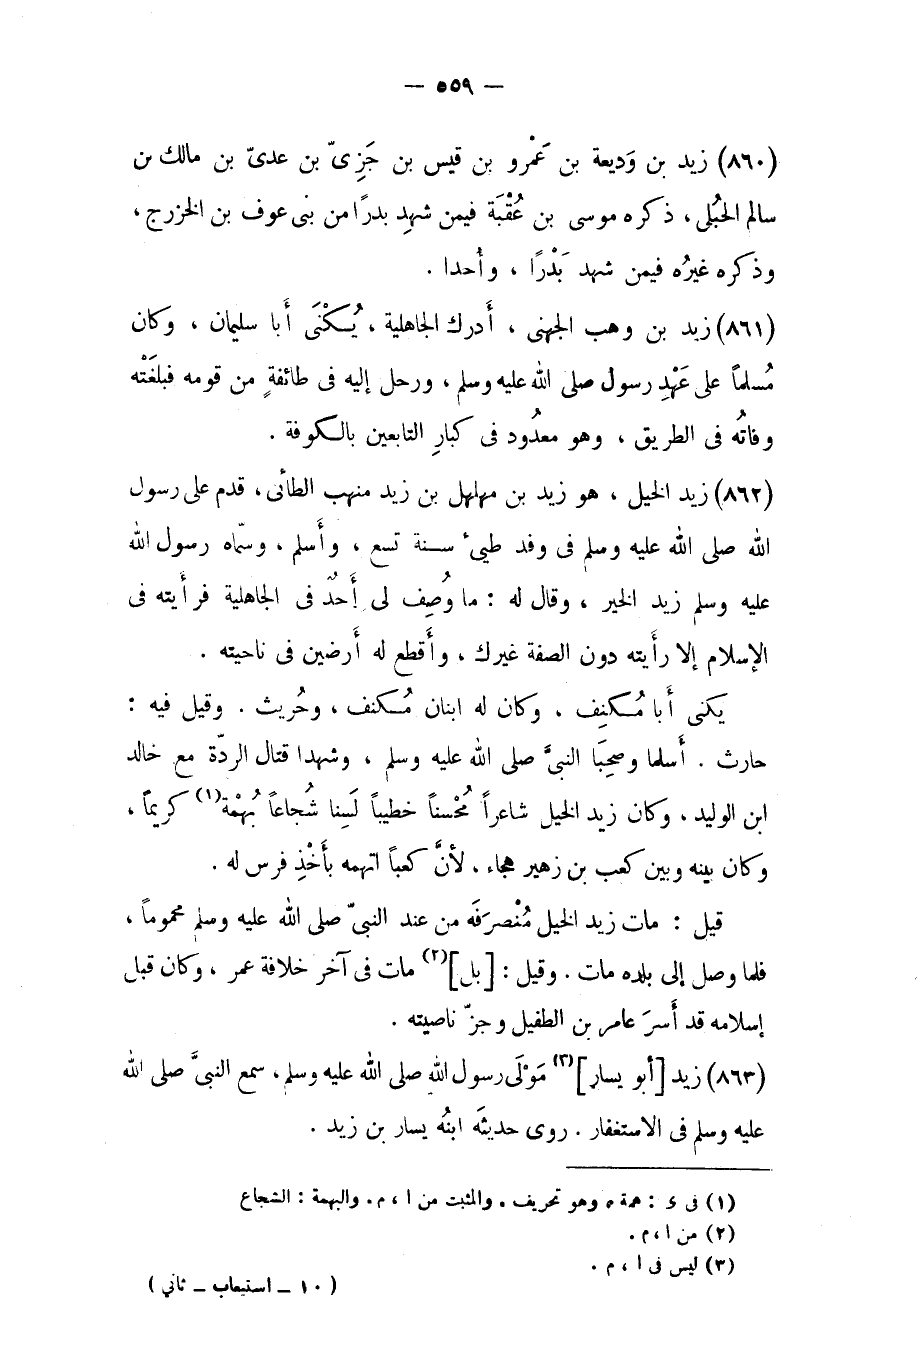 — ٥٥٩ —
(٨٦٠) زيد بن وَديعة بن عَمْرو بن قيس بن جَزِىّ بن عدىّ بن مالك بن
سالم الحُبُلى، ذكره موسى بن عُقْبَة فيمن شهد بدرًا من بنى عوف بن الخزرج،
وذكره غيرُه فيمن شهد بَدْرًا ، وأُحدا .
(٨٦١) زيد بن وهب الجهنى ، أَدرك الجاهلية ، يُكْنَى أَبا سليمان ، وكان
مُسلماً على عَهْدِ رسول صلى الله عليه وسلم ، ورحل إليه فى طائفةٍ من قومه فبلغَتْه
وفاتُه فى الطريق ، وهو معدُود فى كبارِ التابعين بالكوفة .
(٨٦٢) زيد الخيل ، هو زيد بن مهلهل بن زيد منهب الطائى، قدم على رسول
الله صلى الله عليه وسلم فى وفد طيىء سنة تسع ، وأَسلم ، وسمّاه رسول الله
عليه وسلم زيد الخير ، وقال له : ما وُصِف لى أَحدٌ فى الجاهلية فرأَيته فى
الإسلام إلا رأَيته دون الصفة غيرك ، وأَقطع له أَرضين فى ناحيته .
يكنى أَبا مُكنِف . وكان له ابنان مُكنف ، وحُريث . وقيل فيه :
حارث . أَسلما وصحِبَا النبىَّ صلى الله عليه وسلم ، وشهدا قتال الردّة مع خالد
ابن الوليد ، وكان زيد الخيل شاعراً مُحْسناً خطيباً لَسِنا شُجاعاً بُهْمَة(١) كريماً ،
وكان بينه وبين كعب بن زهير هجاء ، لأنَّ كعباً اتهمه بأَخْذِ فرس له .
قيل : مات زيد الخيل مُنْصرَفَه من عند النبىّ صلى الله عليه وسلم محموماً ،
فلما وصل إلى بلده مات . وقيل : [بل](٢) مات فى آخر خلافة عمر ، وكان قبل
إسلامه قد أَسرَ عامر بن الطفيل وجزّ ناصيته .
(٨٦٣) زيد [أبو يسار](٣) مَوْلَى رسول الله صلى الله عليه وسلم، سمع النبىَّ صلى الله
عليه وسلم فى الاستغفار . روى حديثَه ابنُه يسار بن زيد .
(١) فى ى : همة ، وهو تحريف . والمثبت من ا ، م. والبهمة : الشجاع
(٢) من ا ، م .
(٣) ليس فى ا ، م .
( ١٠ ــ استيعاب ــ ثاني )